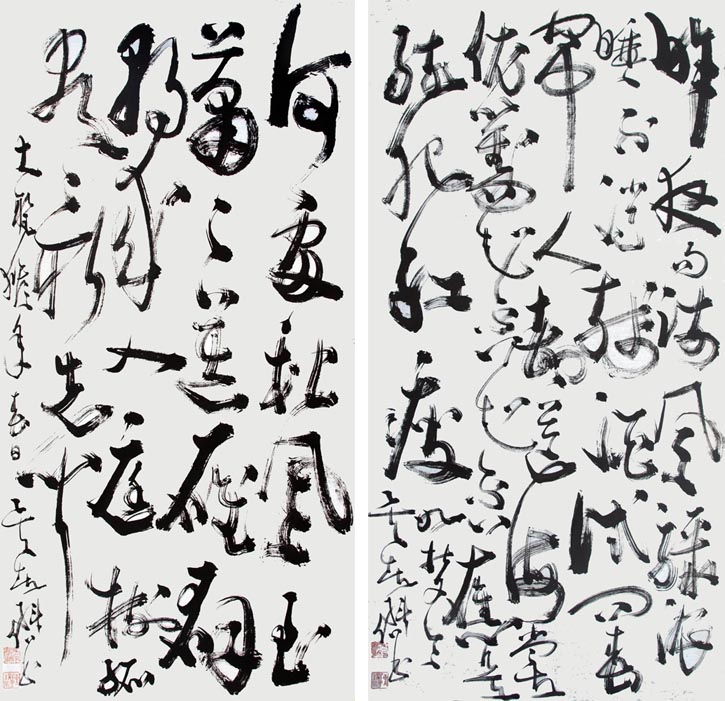 昨夜雨疏風驟濃
睡不消殘酒試問卷
簾人却道海棠
依舊知否知否應是
綠肥紅瘦
如夢令
何處秋風至
蕭蕭送雁群
朝來入庭樹孤
客最先聞
猴年春日